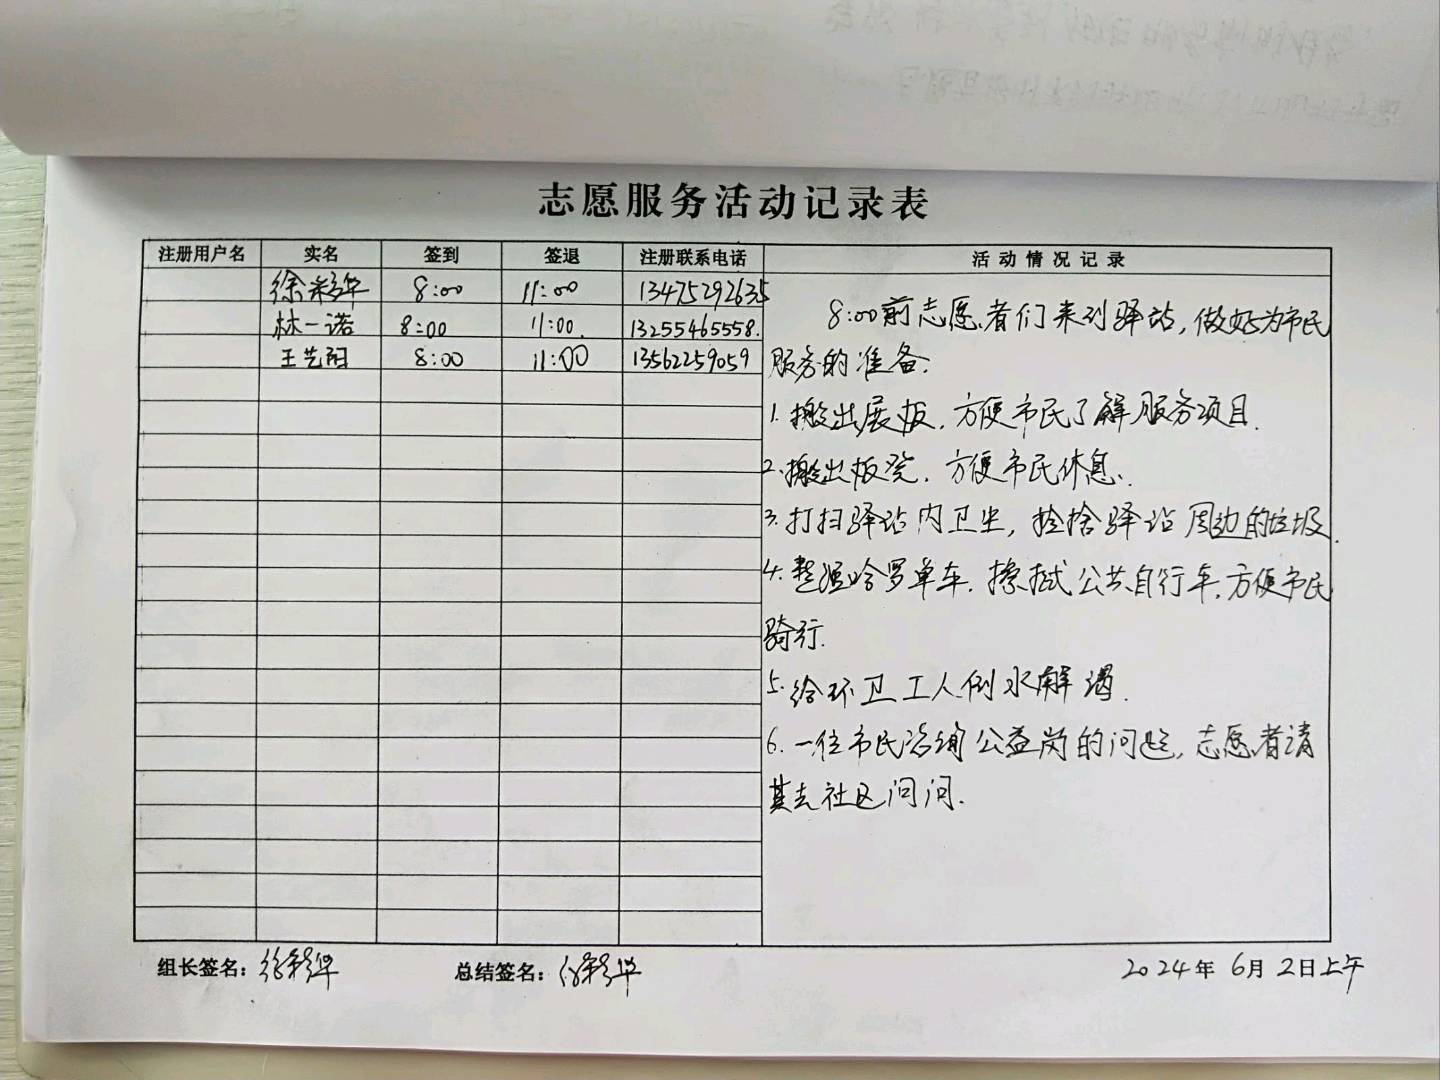 志愿服务活动记录表
注册用户名 实名 签到 签退 注册联系电话 活动情况记录
徐彩华 8:00 11:00 13475292635
林一诺 8:00 11:00. 13255465558.
王艺阳 8:00 11:00 13562259059
8:00前志愿者们来到驿站,做好为市民
服务的准备:
1.搬出展板,方便市民了解服务项目.
2.搬出板凳,方便市民休息.
3.打扫驿站内卫生,捡拾驿站周边的垃圾.
4.整理哈罗单车,擦拭公共自行车,方便市民
骑行.
5.给环卫工人倒水解渴.
6.一位市民咨询公益岗的问题,志愿者请
其去社区问问.
组长签名:徐彩华 总结签名:徐彩华 2024年6月2日上午